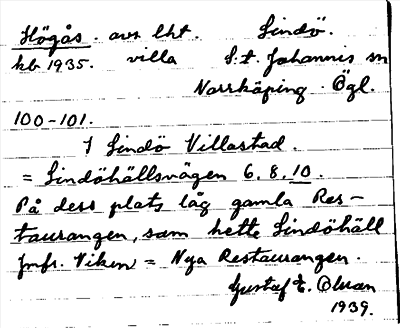 Högås. avs. lht. Lindö.
kb 1935. villa S:t Johannis sn
Norrköping. Ögl.
100-101.
I Lindö Villastad.
= Lindöhällsvägen 6, 8, 10.
På dess plats låg gamla Res-
taurangen, som hette Lindöhäll
Jmfr. Viken = Nya Restaurangen.
Gustaf E. Olsson
1939.